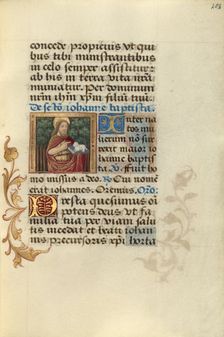 concede propicius vt qui
bus tibi ministrantibus
in celo semper assistitur
ab his in terra vita nostra
muniatur. Per dominum
de sctō iohanne baptista.
Inter na
tos mu
lierum nō sur
rexit maior io
hanne baptis
ta. V. Fuit ho
mo missus a deo. R. Cui nomē
erat iohannes. Oremus. Orō.
Presta quesumus oī
potens deus vt fa
milia tua per viam salu
tis incedat et beati iohan
nis precursoris xpī horta